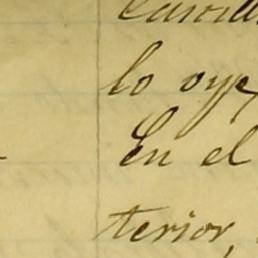 lo oye,
En el
terior,